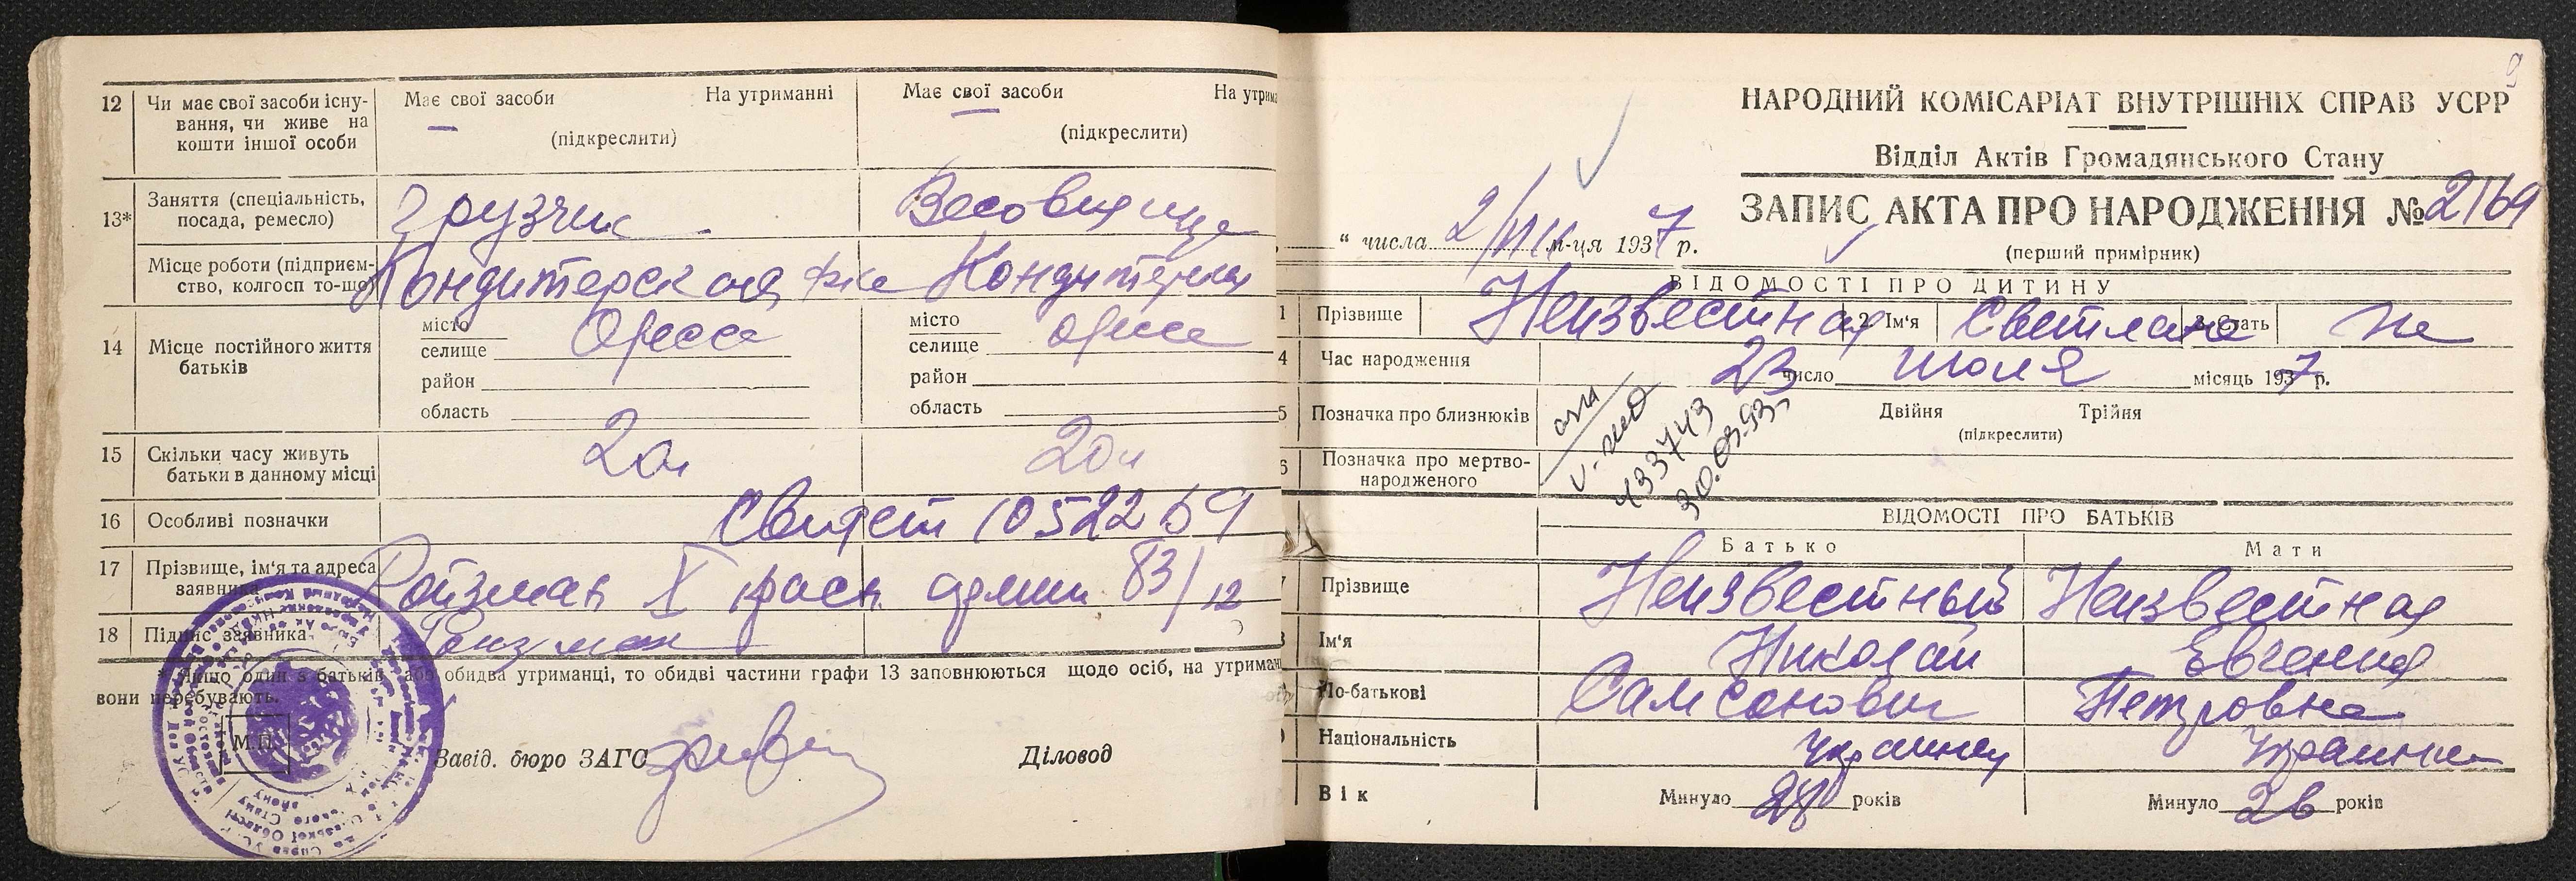 12 Чи має свої засоби існу-
вання, чи живе на
кошти іншої особи
Має свої засоби На утриманні
(підкреслити)
Має свої засоби На утрима
(підкреслити)
13* Заняття (спеціальність,
посада, ремесло)
Грузчик Весовщица
Місце роботи (підприєм-
ство, колгосп то-що)
Кондитерская ф-ка Кондитерка
14 Місце постійного життя
батьків
місто
селище Одесса
район
область
місто
селище Одесса
район
область
15 Скільки часу живуть
батьки в данному місці
20 20
16 Особливі позначки
Свидет 1052269
17 Прізвище, ім‘я та адреса
заявника
Ройзман Х красн армии 83/12
18 Підпис заявника
Ройзман
* Якщо один з батьків або обидва утриманці, то обидві частини графи 13 заповнюються щодо осіб, на утриман
вони перебувають.
М.П.
Завід. бюро ЗАГС Діловод
9
НАРОДНИЙ КОМІСАРІАТ ВНУТРІШНІХ СПРАВ УСРР
Відділ Актів Громадянського Стану
ЗАПИС АКТА ПРО НАРОДЖЕННЯ № 2169
“ числа 2/VIII м-ця 1937 р.
(перший примірник)
ВІДОМОСТІ ПРО ДИТИНУ
1 Прізвище Неизвестная 2. Ім‘я Светлана 3. Стать ж
4 Час народження 23 число июля місяць 1937 р.
5 Позначка про близнюків Двійня Трійня
(підкреслити)
433743
30.09.93
6 Позначка про мертво-
народженого
ВІДОМОСТІ ПРО БАТЬКІВ
Батько Мати
7 Прізвище Неизвестный Неизвестная
8 Ім‘я Николай Евгения
По-батькові Самсонович Петровна
Національність Украинец Украинка
Вік Минуло 28 років Минуло 26 років